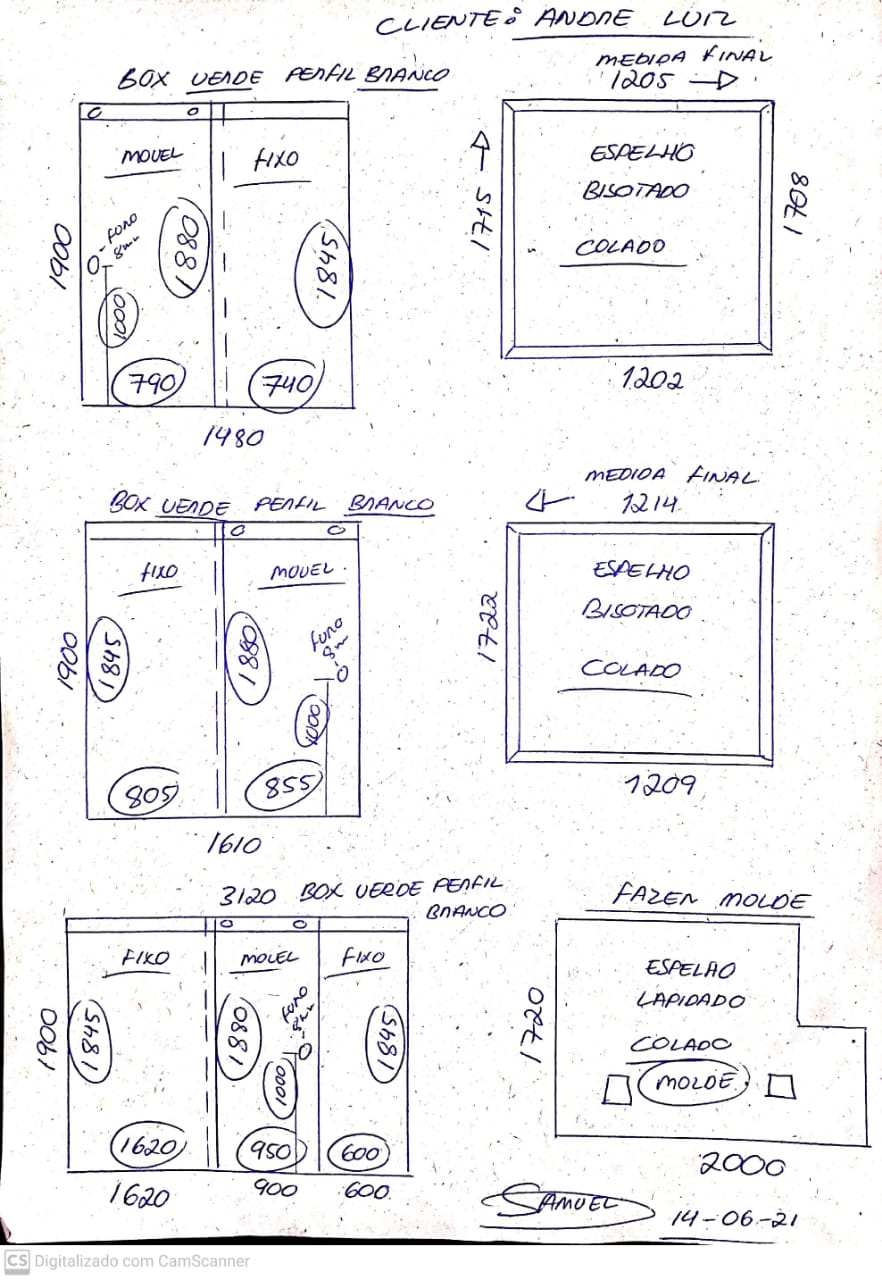 CLIENTE: ANDRE LUIZ
BOX VERDE PERFIL BRANCO
MOVEL
FIXO
1900
FURO
8mm
1000
1880
1845
790
740
1480
MEDIDA FINAL
1205
1715
ESPELHO
BISOTADO
COLADO
1708
1202
BOX VERDE PERFIL BRANCO
FIXO
MOVEL
1900
1845
1880
FURO
8m
1000
805
855
1610
MEDIDA FINAL
1214
1722
ESPELHO
BISOTADO
COLADO
1209
3120 BOX VERDE PERFIL
BRANCO
FIXO
MOVEL
FIXO
1900
1845
1880
FURO
8mm
1000
1845
1620
950
600
1620
900
600
FAZER MOLDE
1720
ESPELHO
LAPIDADO
COLADO
MOLDE
2000
SAMUEL
14-06-21
CS Digitalizado com CamScanner